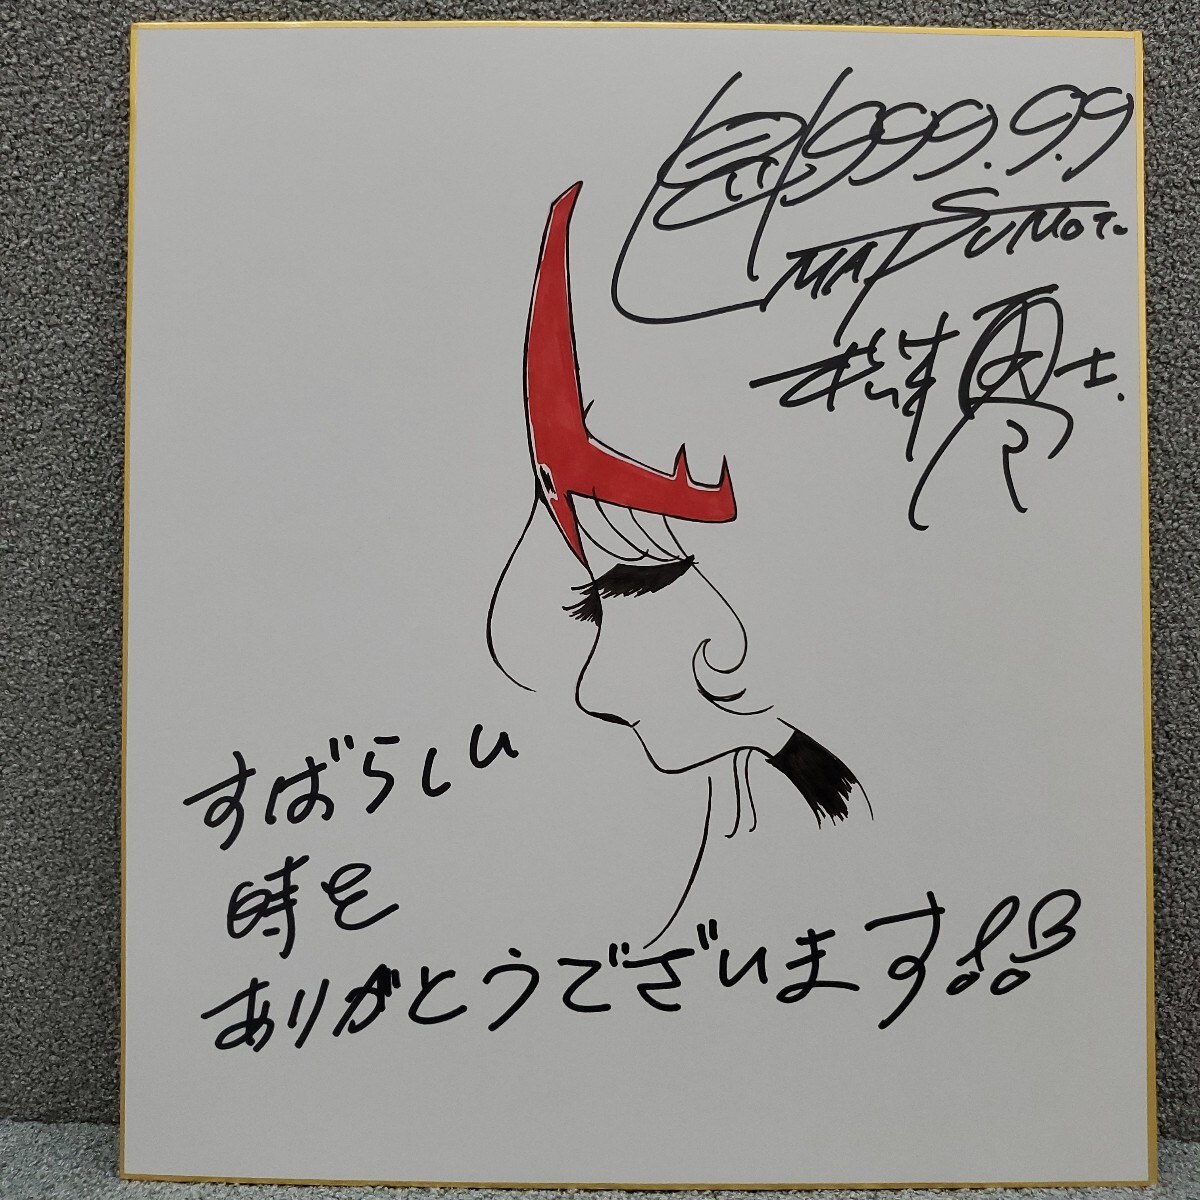 1999.9.9
MATSUMOTO
松本零士
すばらしい
時を
ありがとうございます!!